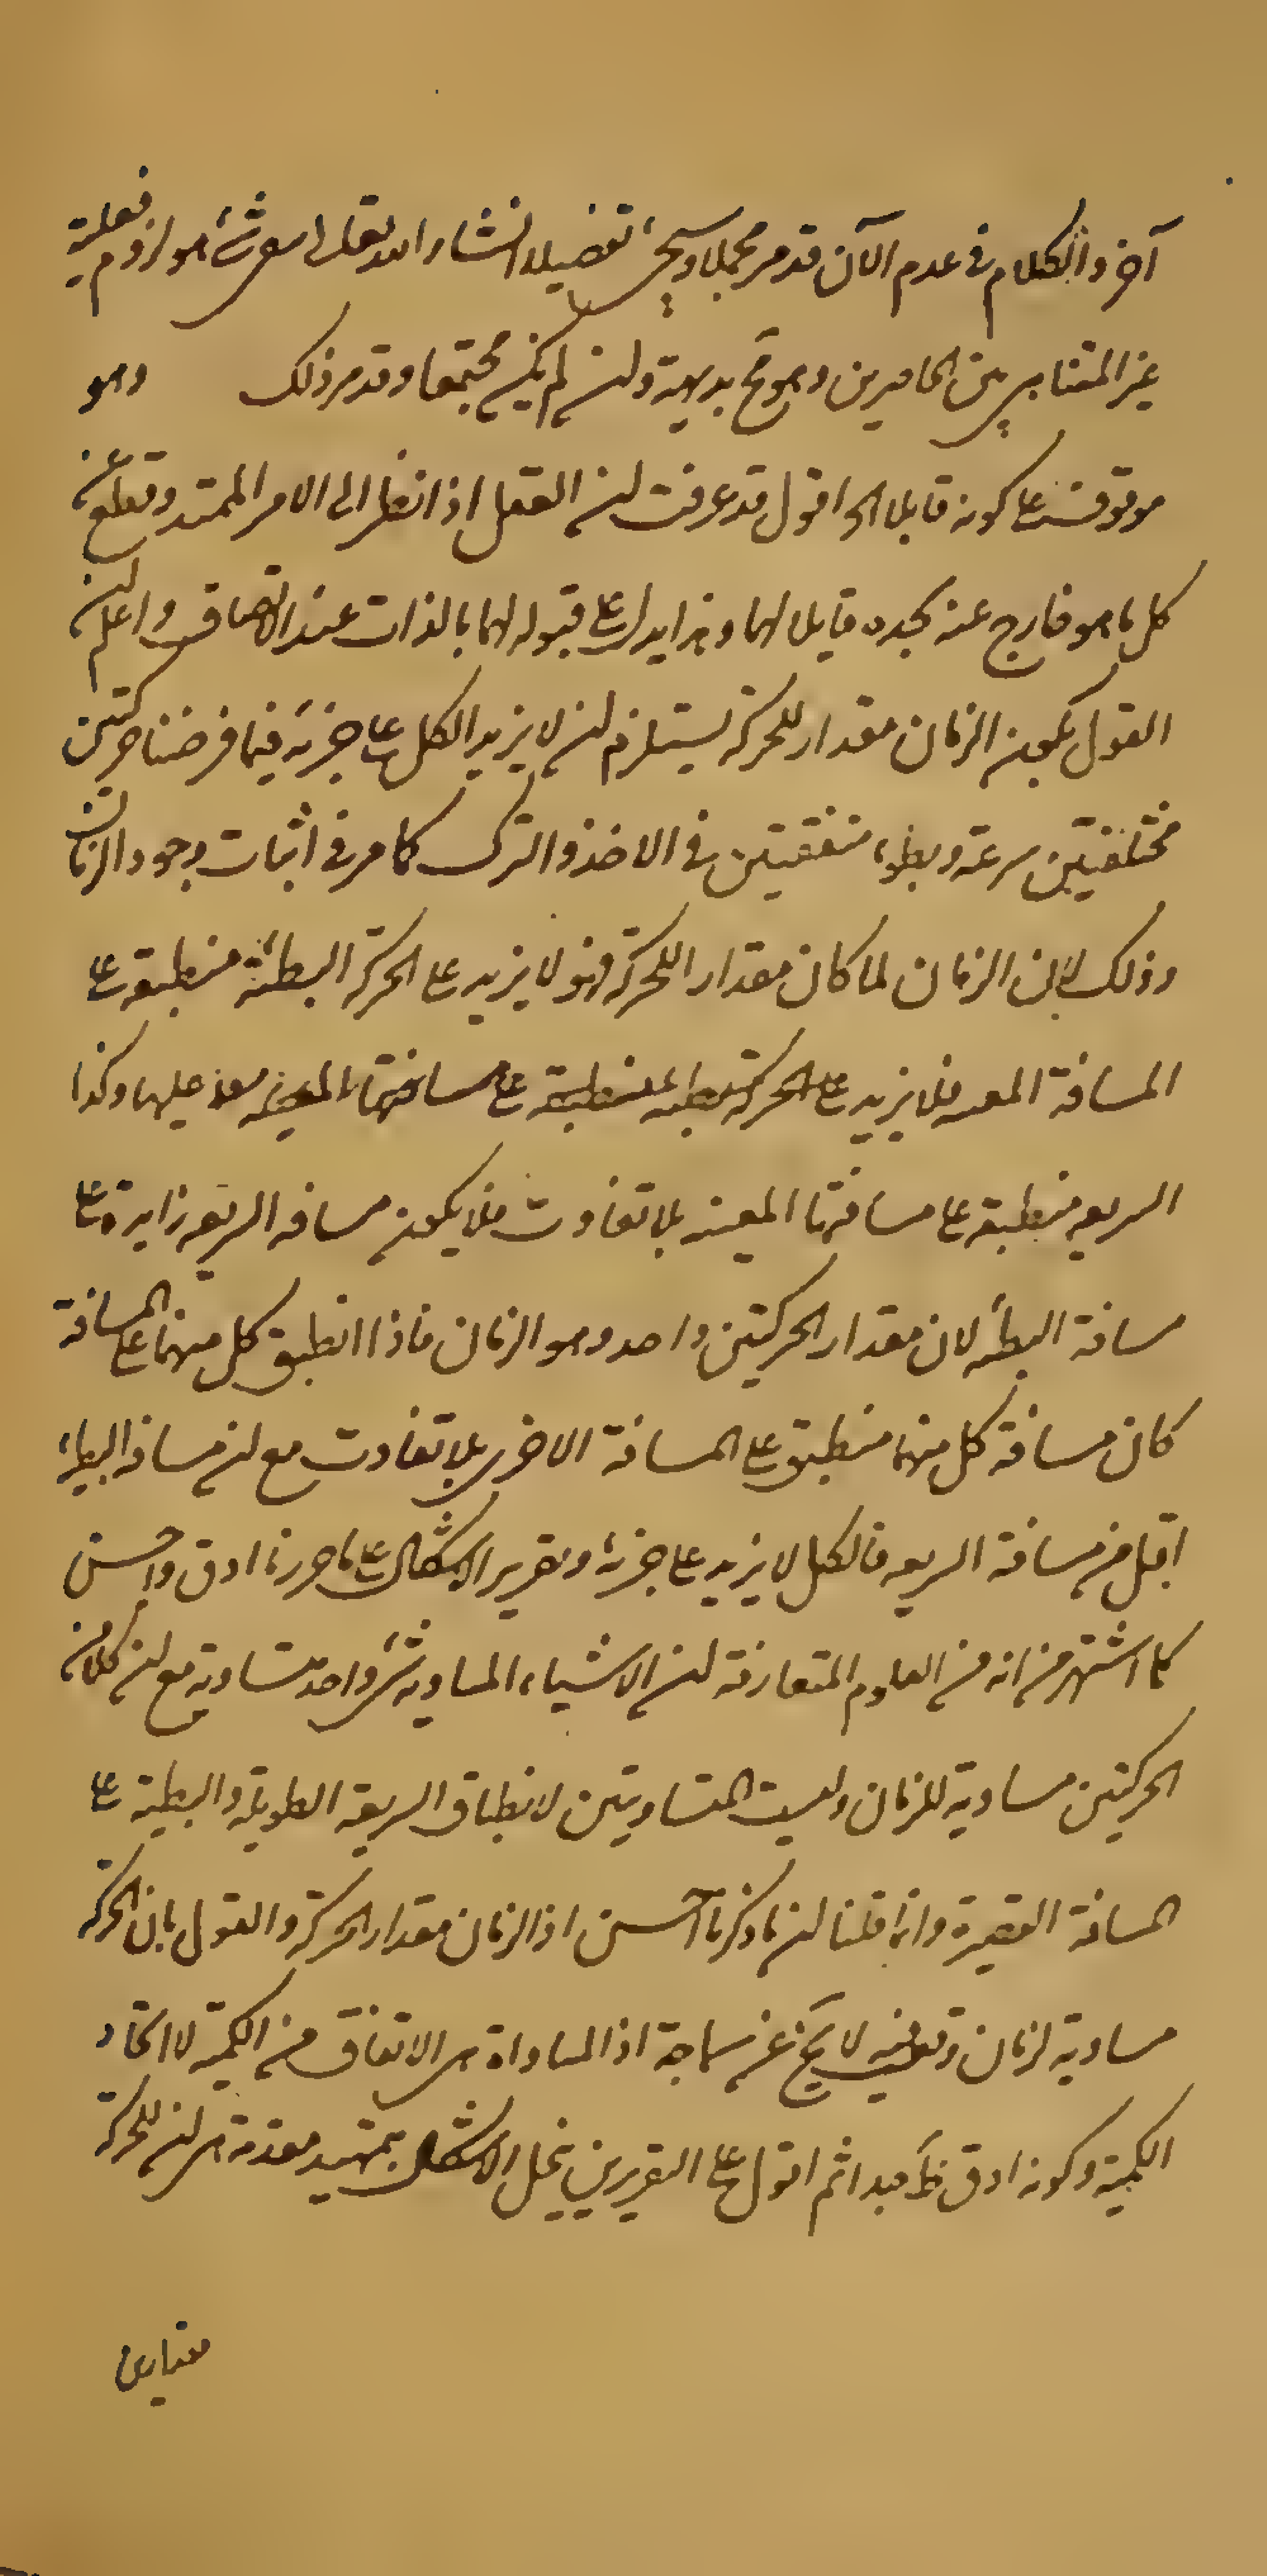 آخر والكلام في عدم الآن قد مر مجملا وسيجئ تفصيله انشاء الله تعالى شئ هو لزوم فعلية
غير المتناهي بين الحاصرين وهو مح بديهة ولن لم يكن مجتمعا وقد مر ذلك وهو
موقوف على كونه قابلا الخ اقول قد عرفت لن العقل اذا نظر الى الامر الممتد وقطع عن
كل ما هو خارج عنه يجده قابلا لهما وهذا يدل على قبوله لهما بالذات عند الانصاف واعلم لن
القول بكون الزمان مقدار للحركة يستلزم لن لا يزيد الكل على جزئه فيما فرضنا حركتين
مختلفتين سرعة وبطوء متفقتين في الاخذ والترك كما مر في اثبات وجود الزمان
وذلك لان الزمان لما كان مقدار اللحركة فهو لا يزيد على الحركة البطئة منطبقة على
المسافة المعينه فلا يزيد على الحركة منطبقة على مسافتها المعينه عليها وكذا
السريعه منطبقة على مسافتها المعينه بلا تفاوت فلا يكون مسافه السريعه زايدة على
مسافة البطئه لان مقدار الحركتين واحد وهو الزمان فاذا انطبق كل منهما على المسافة
كان مسافة كل منهما منطبق على المسافة الاخرى بلا تفاوت مع لن مسافة البطء
اقل من مسافة السريعه فالكل لا يزيد على جزئه وتقرير الاشكال على ما حررنا ادق واحسن
كما اشتهر من انه من العلوم المتعارفة لن الاشياء المساويه لشئ واحد متساوية مع لن كلا من
الحركتين مساوية للزمان وليست المتساويتين لانطباق السريعة الطويلة والبطية على
المسافة القصيرة وانما قلنا لن ما ذكرنا احسن اذ الزمان مقدار الحركة والقول بان الحركة
مساوية لزمان لا يخ عن سماجة اذ المساواة هي الاتفاق من الكمية لا اتحاد
الكمية وكونه ادق ظ جدا ثم اقول على التقريرين ينحل الاشكال بتمهيد مقدمة هي لن للحركة